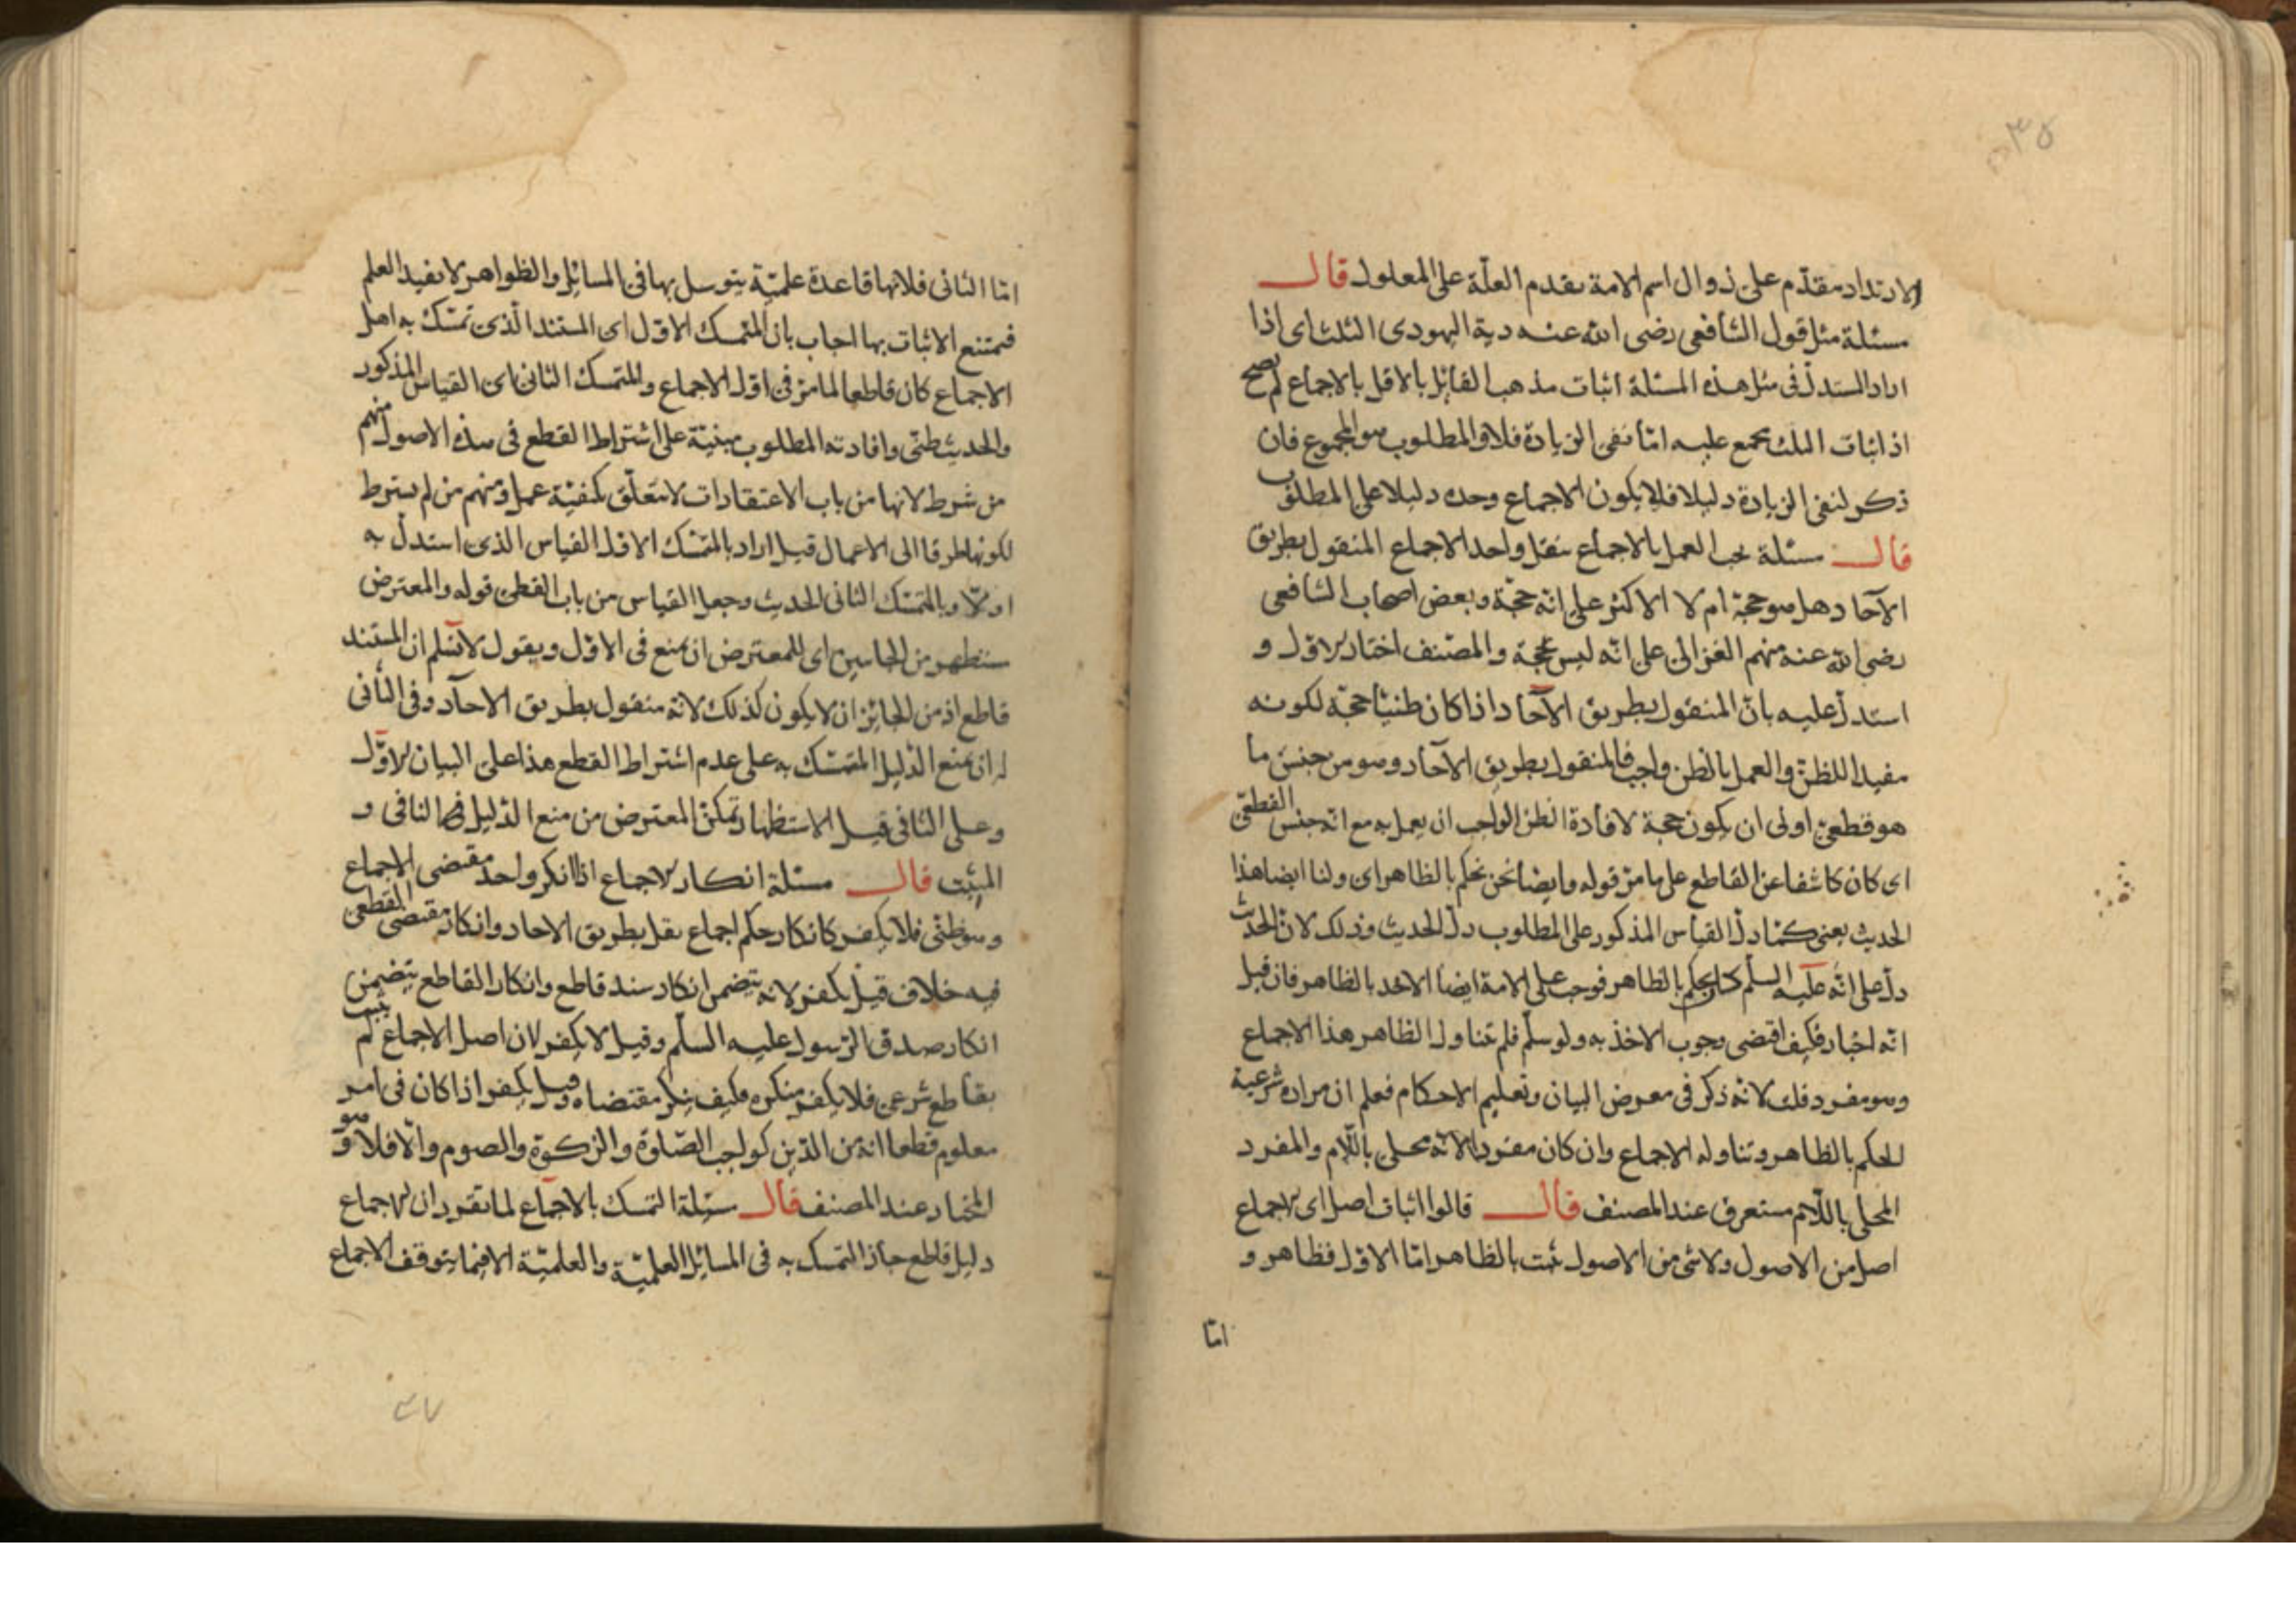 ٣٥
الارتداد مقدّم على زوال اسم الامة تقدم العلّة على المعلول قال
مسئلة مثل قول الشافعى رضى الله عنه دية اليهودى الثلث اى اذا
اراد المستدل فى مثل هذه المسئلة اثبات مذهب القائل بالاقل بالاجماع لم يصح
اذ اثبات الثلث مجمع عليه امّا نفى الزيادة فلا والمطلوب هو المجموع فان
ذكر لنفى الزيادة دليلا فلا يكون الاجماع وحده دليلا على المطلوب
قال مسئلة يجب العمل بالاجماع بنقل واحد الاجماع المنقول بطريق
الآحاد هل هو حجة ام لا الاكثر على انّه حجّة وبعض اصحاب الشافعى
رضى الله عنه منهم الغزالى على انّه ليس بحجة والمصنف اختار الاول و
استدل عليه بانّ المنقول بطريق الآحاد اذا كان ظنيّا حجّة لكونه
مفيدا للظنّ والعمل بالظن واجب فالمنقول بطريق الآحاد وهو من جنس ما
هو قطعىّ اولى ان يكون حجة لافادة الظن الواجب ان يعمل به مع انّه جنس القطعىّ
اى كان كاشفا عن القاطع على ما مرّ قوله وايضا نحن نحكم بالظاهر اى ولنا ايضا هذا
الحديث يعنى كما دلّ القياس المذكور على المطلوب دلّ الحديث وذلك لان الحديث
دلّ على انّه عليه السلم كان يحكم بالظاهر فوجب على الامة ايضا الاخذ بالظاهر فان قيل
انّه اخبار فكيف اقتضى وجوب الاخذ به ولو سلّم فلم تناول الظاهر هذا الاجماع
وهو مفرد قلت لانّه ذكر فى معرض البيان وتعليم الاحكام فعلم ان مراده شرعية
الحكم بالظاهر وتناوله الاجماع وان كان مفردا لانّه محلى باللّام والمفرد
المحلى باللّام مستغرق عند المصنف قال قالوا اثبات اصل اى الاجماع
اصل من الاصول ولا شئ من الاصول يثبت بالظاهر امّا الاوّل فظاهر و
امّا
امّا الثانى فلانها قاعدة علميّة يتوسل بها فى المسائل والظواهر لا يفيد العلم
فيمتنع الاثبات بها اجاب بان المتمسك الاوّل اى المستند الّذى تمسّك به اهل
الاجماع كان قاطعا لما مرّ فى اوّل الاجماع والمتمسك الثانى اى القياس المذكور
والحديث ظنّى وافادته المطلوب مبنيّة على اشتراط القطع فى هذه الاصول منهم
من شرط لانها من باب الاعتقادات لا تتعلّق بكيفيّة عمل ومنهم من لم يشترط
لكونها طرقا الى الاعمال قيل اراد بالمتمسّك الاوّل القياس الذى استدلّ به
اوّلا وبالمتمسّك الثانى الحديث وجعل القياس من باب القطعى قوله والمعترض
مستظهر من الجانبين اى للمعترض ان يمنع فى الاوّل ويقول لا نسلّم ان المستند
قاطع اذ من الجائز ان لا يكون كذلك لانّه منقول بطريق الاحاد وفى الثانى
له ان يمنع الدّليل المتمسّك به على عدم اشتراط القطع هذا على البيان الاوّل
وعلى الثانى قيل الاستظهار تمكّن المعترض من منع الدّليل النافى و
المثبت قال مسئلة انكار الاجماع اذا انكر واحد مقتضى الاجماع
وهو ظنّى فلا يكفر كانكار حكم اجماع نقل بطريق الاحاد وانكار مقتضى القطعى
فيه خلاف قيل يكفر لانه يتضمن انكار سند قاطع وانكار القاطع يتضمن
انكار صدق الرّسول عليه السلّم وقيل لا يكفر لان اصل الاجماع لم يثبت
بقاطع شرعى فلا يكفر منكره فكيف ينكر مقتضاه وقيل يكفر اذا كان فى امر
معلوم قطعا انه من الدّين كواجب الصّلوة والزكوة والصوم والّا فلا وهو
المختار عند المصنف قال مسئلة التمسك بالاجماع لما تقرر ان الاجماع
دليل قاطع جاز التمسك به فى المسائل العلميّة والعلميّة الا فيما يتوقف الاجماع
٣٧